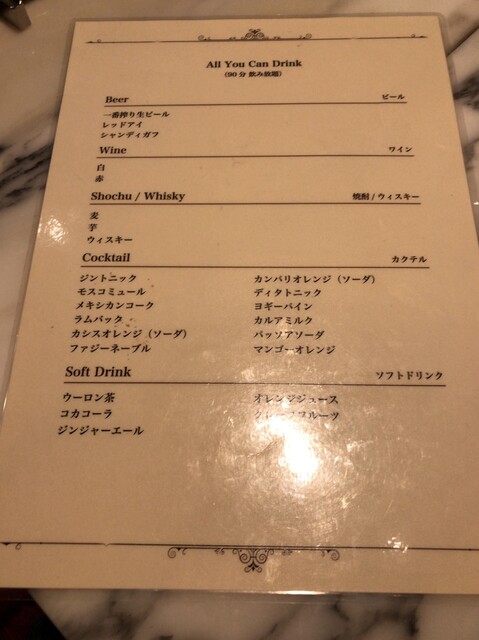 All You Can Drink
(90分 飲み放題)
Beer ビール
一番搾り生ビール
レッドアイ
シャンディガフ
Wine ワイン
白
赤
Shochu / Whisky 焼酎 / ウィスキー
麦
芋
ウィスキー
Cocktail カクテル
ジントニック カンパリオレンジ（ソーダ）
モスコミュール ディタトニック
メキシカンコーク ヨギーパイン
ラムバック カルアミルク
カシスオレンジ（ソーダ） パッソアソーダ
ファジーネーブル マンゴーオレンジ
Soft Drink ソフトドリンク
ウーロン茶 オレンジジュース
コカコーラ グレープフルーツ
ジンジャーエール